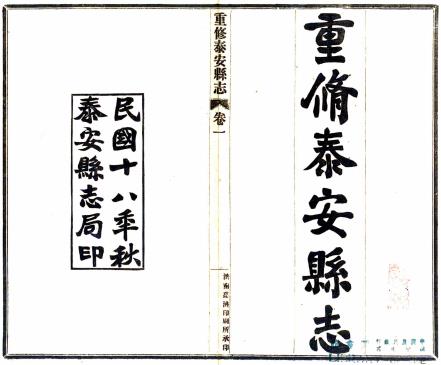 重脩泰安縣志
重修泰安縣志
卷一
濟南慈濟印刷所承印
民國十八年秋
泰安縣志局印